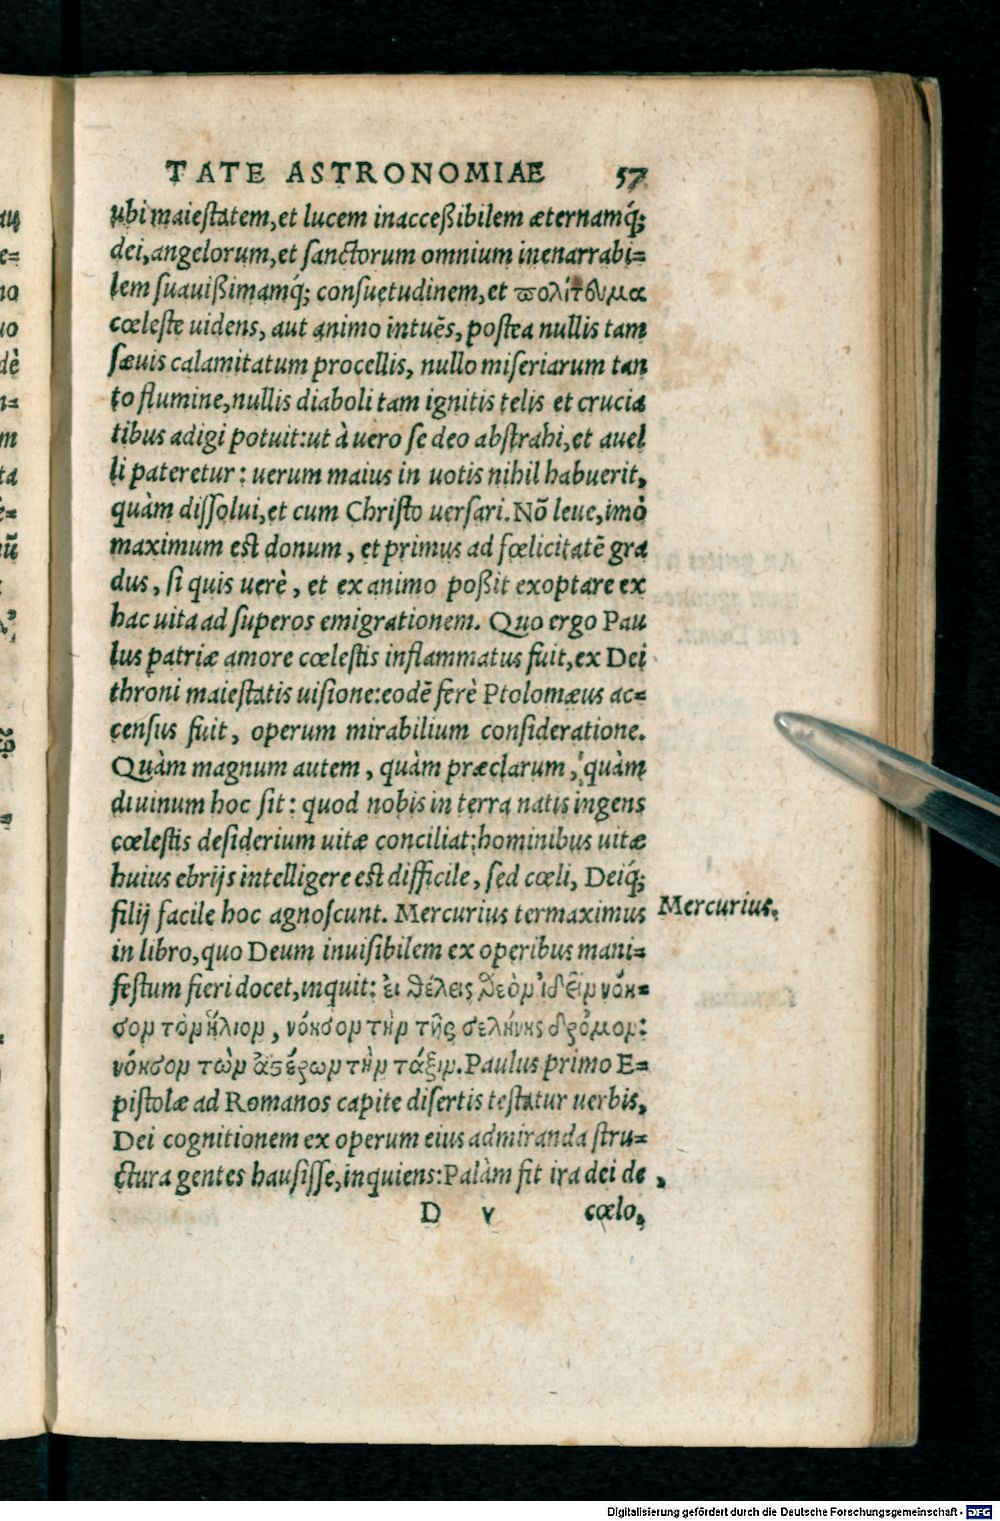 TATE ASTRONOMIAE 57
ubi maiestatem, et lucem inacceßibilem æternamq́;
dei, angelorum, et sanctorum omnium inenarrabi=
lem suauißimamq́; consuetudinem, et πολίτευμα
cœleste uidens, aut animo intuẽs, postea nullis tam
sæuis calamitatum procellis, nullo miseriarum tan
to flumine, nullis diaboli tam ignitis telis et crucia
tibus adigi potuit: ut à uero se deo abstrahi, et auel
li pateretur: uerum maius in uotis nihil habuerit,
quàm dissolui, et cum Christo uersari. Nõ leue, imò
maximum est donum, et primus ad fœlicitatẽ gra
dus, si quis uerè, et ex animo poßit exoptare ex
hac uita ad superos emigrationem. Quo ergo Pau
lus patriæ amore cœlestis inflammatus fuit, ex Dei
throni maiestatis uisione: eodẽ ferè Ptolomæus ac=
census fuit, operum mirabilium consideratione.
Quàm magnum autem, quàm præclarum, quàm
diuinum hoc sit: quod nobis in terra natis ingens
cœlestis desiderium uitæ conciliat: hominibus uitæ
huius ebrijs intelligere est difficile, sed cœli, Deiq́;
filij facile hoc agnoscunt. Mercurius termaximus
Mercurius.
in libro, quo Deum inuisibilem ex operibus mani=
festum fieri docet, inquit: ἐι θέλεις θεὸν ἰδεῖν νόη=
σον τὸν ἥλιον, νόησον τὴν τῆς σελήνης δρόμον:
νόησον τῶν ἀστέρων τὴν τάξιν. Paulus primo E=
pistolæ ad Romanos capite disertis testatur uerbis,
Dei cognitionem ex operum eius admiranda stru=
ctura gentes hausisse, inquiens: Palàm fit ira dei de
D v cœlo,
Digitalisierung gefördert durch die Deutsche Forschungsgemeinschaft - DFG